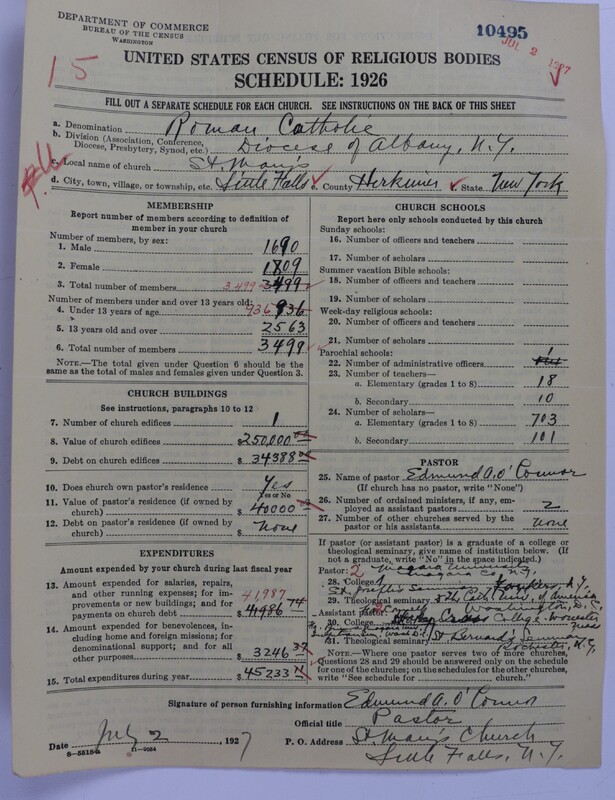 DEPARTMENT OF COMMERCE
BUREAU OF THE CENSUS
WASHINGTON
10495
JUL 2 1927
15
UNITED STATES CENSUS OF RELIGIOUS BODIES
SCHEDULE: 1926
FILL OUT A SEPARATE SCHEDULE FOR EACH CHURCH. SEE INSTRUCTIONS ON THE BACK OF THIS SHEET
a. Denomination Roman Catholic
b. Division (Association, Conference, Diocese, Presbytery, Synod, etc.) Diocese of Albany, N.Y.
c. Local name of church St. Mary's
d. City, town, village, or township, etc. Little Falls e. County Herkimer State New York
MEMBERSHIP
Report number of members according to definition of member in your church
Number of members, by sex:
1. Male 1690
2. Female 1809
3. Total number of members 3499 3499
Number of members under and over 13 years old:
4. Under 13 years of age 936 936
5. 13 years old and over 2563
6. Total number of members 3499
NOTE.—The total given under Question 6 should be the same as the total of males and females given under Question 3.
CHURCH BUILDINGS
See instructions, paragraphs 10 to 12
7. Number of church edifices 1
8. Value of church edifices $250,000
9. Debt on church edifices $34388
10. Does church own pastor's residence? Yes
Yes or No
11. Value of pastor's residence (if owned by church) $40000
12. Debt on pastor's residence (if owned by church) $ none
EXPENDITURES
Amount expended by your church during last fiscal year
13. Amount expended for salaries, repairs, and other running expenses; for improvements or new buildings; and for payments on church debt 41,987 $ 74
14. Amount expended for benevolences, including home and foreign missions; for denominational support; and for all other purposes $3246 37
15. Total expenditures during year $45233
CHURCH SCHOOLS
Report here only schools conducted by this church
Sunday schools:
16. Number of officers and teachers
17. Number of scholars
Summer vacation Bible schools:
18. Number of officers and teachers
19. Number of scholars
Week-day religious schools:
20. Number of officers and teachers
21. Number of scholars
Parochial schools:
22. Number of administrative officers 1
23. Number of teachers—
a. Elementary (grades 1 to 8) 18
b. Secondary 10
24. Number of scholars—
a. Elementary (grades 1 to 8) 703
b. Secondary 101
PASTOR
25. Name of pastor Edmund A. O'Connor
(If church has no pastor, write "None")
26. Number of ordained ministers, if any, employed as assistant pastors 2
27. Number of other churches served by the pastor or his assistants none
If pastor (or assistant pastor) is a graduate of a college or theological seminary, give name of institution below. (If not a graduate, write "No" in the space indicated.)
Pastor: 2 Niagara University
28. College Niagara Co. N.Y.
St. Joseph's Seminary Yonkers, N.Y.
29. Theological seminary Cath. Univ. of America
Washington, D.C.
Assistant pastor:
30. College Holy Cross College Worcester Mass
31. Theological seminary St. Bernard's Seminary
Rochester, N.Y.
NOTE.—Where one pastor serves two or more churches, Questions 28 and 29 should be answered only on the schedule for one of the churches; on the schedules for the other churches, write "See schedule for church."
Signature of person furnishing information Edmund A. O'Connor
Official title Pastor
Date July 2, 1927 P. O. Address St. Mary's Church
Little Falls, N.Y.